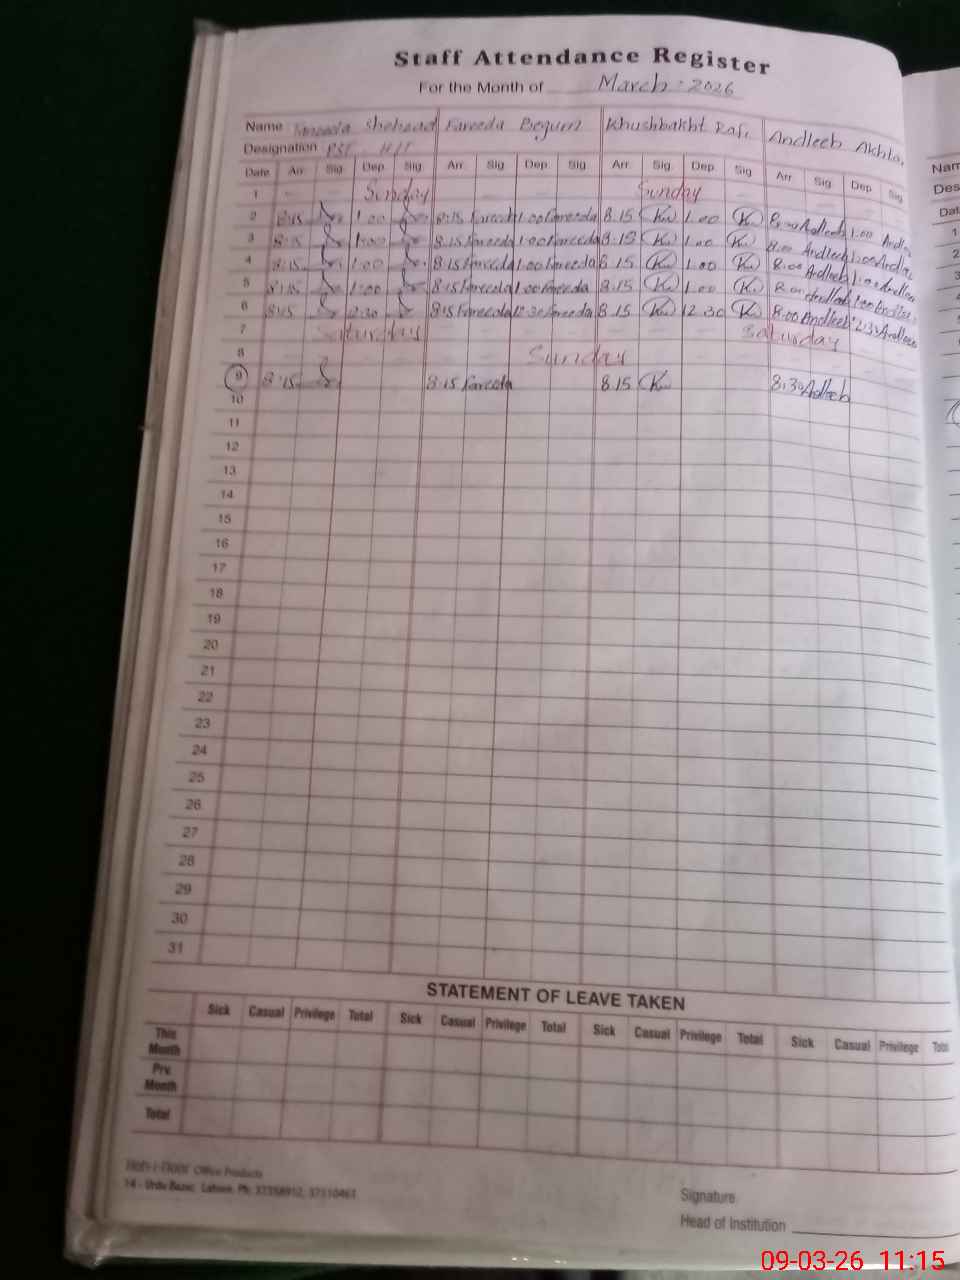 Staff Attendance Register
For the Month of March - 2026
Name Shehzad Fareeda Begum Khushbakht Rafi Andleeb Akhta
Designation PST H/T
Date Arr. Sig. Dep. Sig. Arr. Sig Dep. Sig Arr. Sig. Dep. Sig Arr. Sig Dep Sig.
1 Sunday Sunday
2 8:15 1:00 8:15 Fareeda 1:00 Fareeda 8.15 K 1.00 K Andleeb 1:00 Andle
3 8:15 1:00 8:15 Fareeda 1:00 Fareeda 8.15 K 1.00 K 8:00 Andleeb 1:00 Andle
4 8:15 1:00 8:15 Fareeda 1:00 Fareeda 8.15 K 1.00 K 8:00 Andleeb 1:00 Andlee
5 8:15 1:00 8:15 Fareeda 1:00 Fareeda 8.15 K 1.00 K 8:00 Andleeb 1:00 Andlee
6 8:15 12:30 8:15 Fareeda 12:30 Fareeda 8.15 K 12.30 K 8:00 Andleeb 12:30 Andleeb
7 Saturday Saturday
8 Sunday
9 8:15 8:15 Fareeda 8.15 K 8:30 Andleeb
10
11
12
13
14
15
16
17
18
19
20
21
22
23
24
25
26
27
28
29
30
31
STATEMENT OF LEAVE TAKEN
Sick Casual Privilege Total Sick Casual Privilege Total Sick Casual Privilege Total Sick Casual Privilege Total
This Month
Prv. Month
Total
Office Products
14 - Urdu Bazar, Lahore. Ph:
Signature
Head of Institution
Nam
Des
Dat
1
2
3
09-03-26 11:15